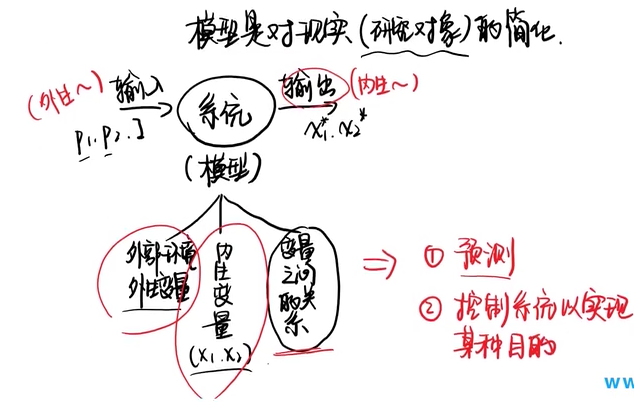 模型是对现实(研究对象)的简化.
(外生～) 输入 系统 输出 (内生～)
P₁.P₂.I x₁*.x₂*
(模型)
外部环境
外生变量
内生变量
(x₁.x₂)
变量之间的关系
⇒ ① 预测
② 控制系统以实现
某种目的
ww